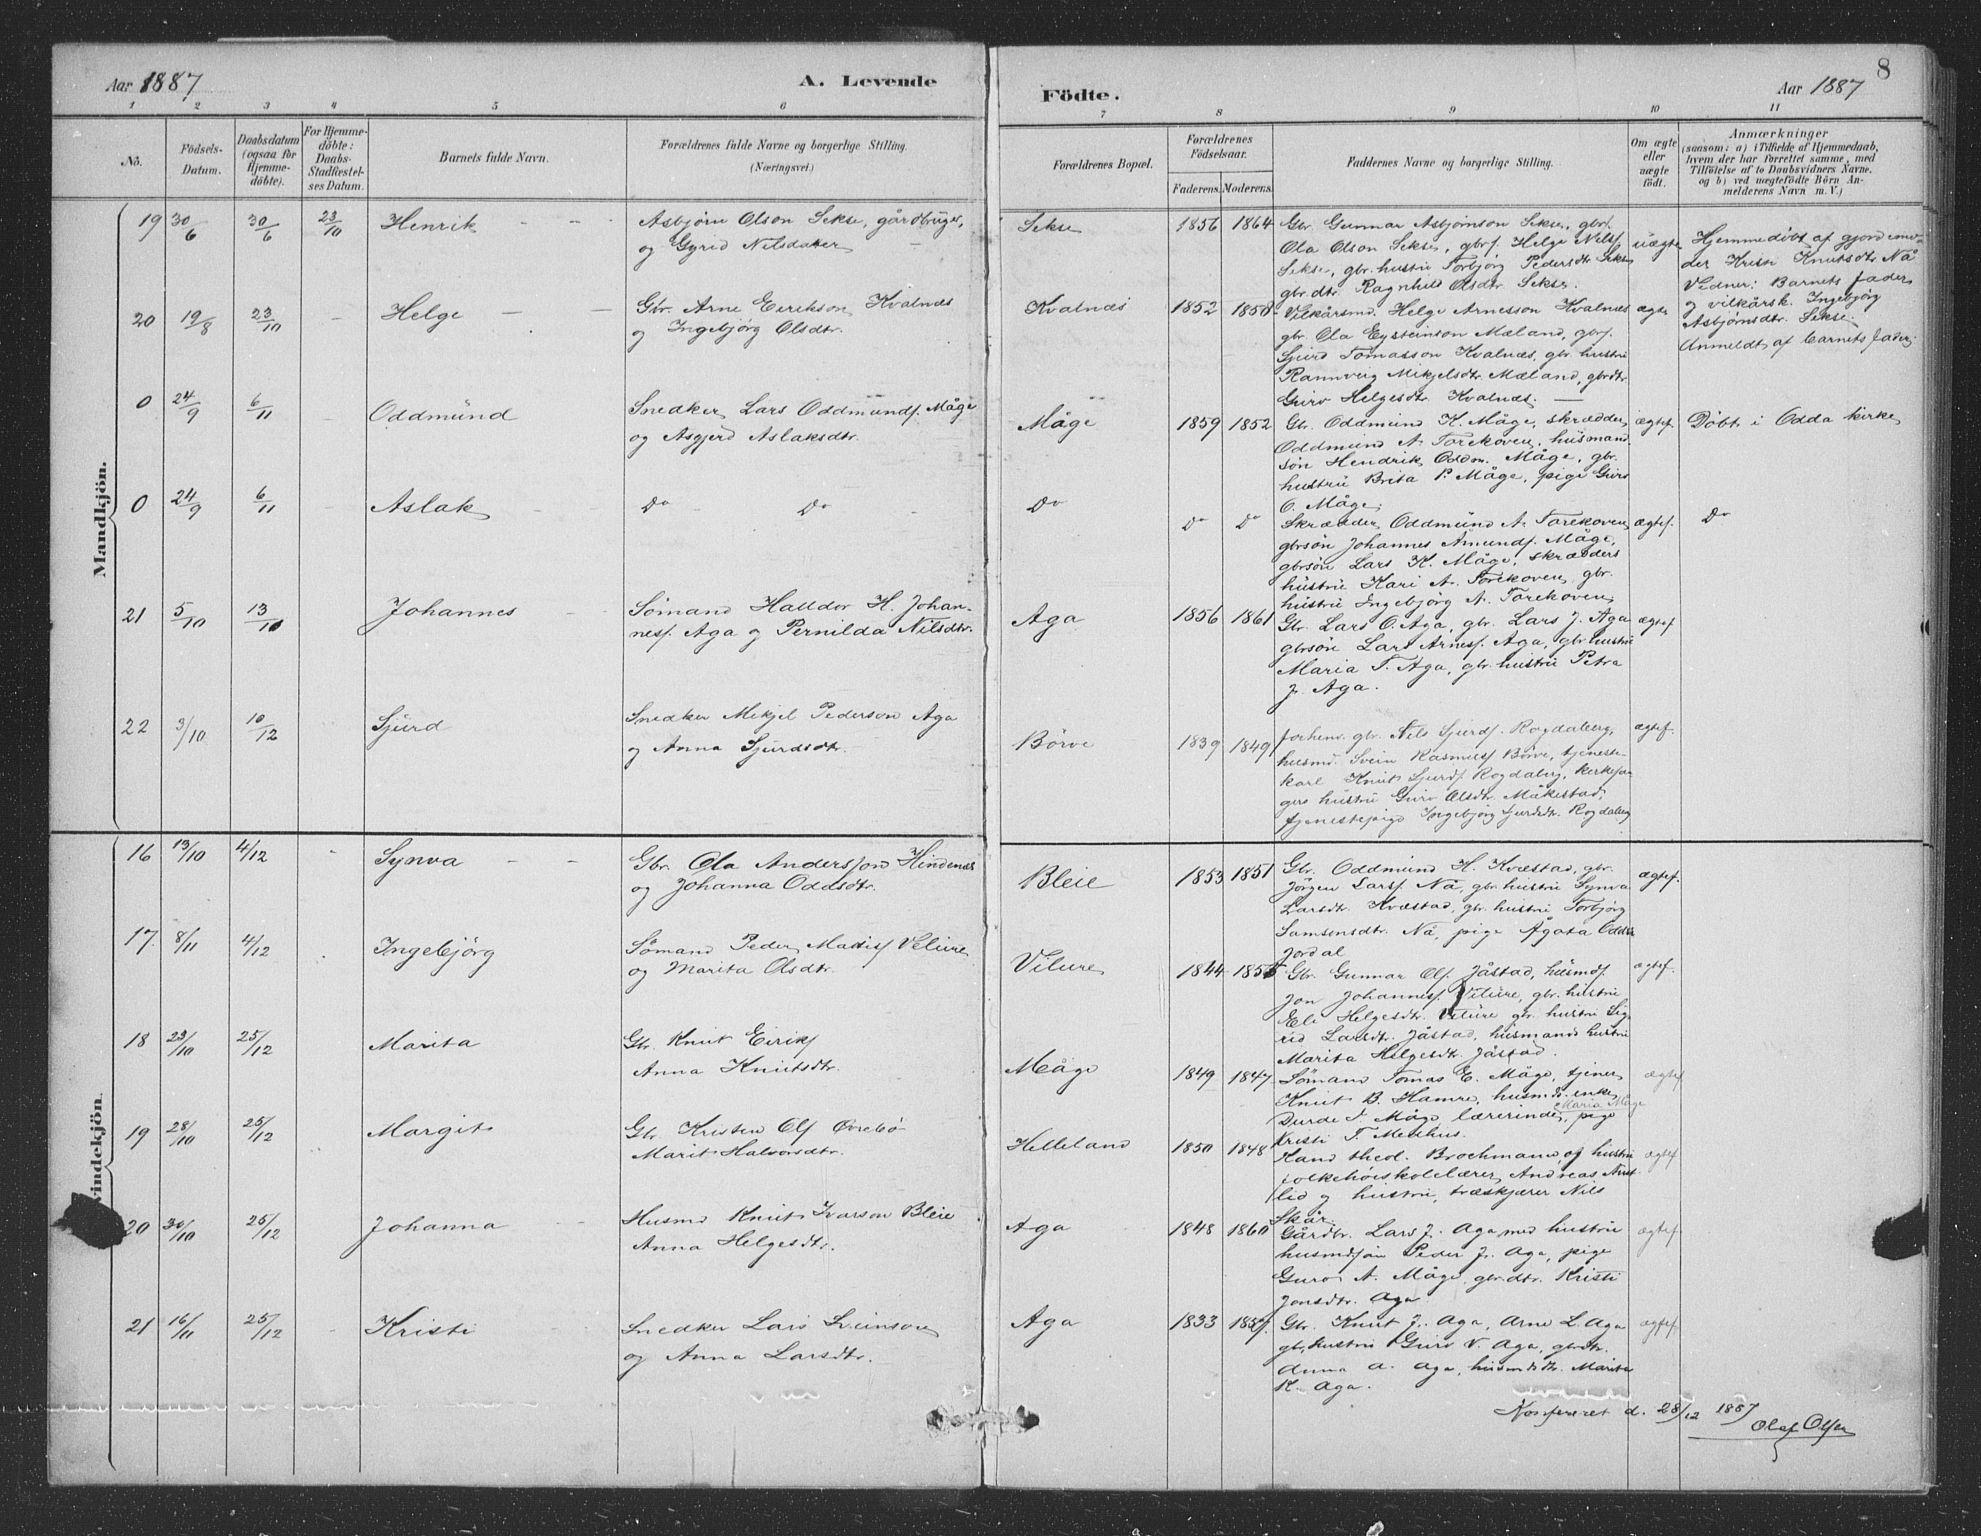 Aar 1887
A. Levende
Födte.
Aar 1887
8
1 2 3 4 5 6 7 8 9 10 11
No.
Födsels-
Datum.
Daabsdatum
(ogsaa för
Hjemme-
döbte).
For Hjemme-
döbte:
Daabs-
Stadfæstel-
ses Datum.
Barnets fulde Navn.
Forældrenes fulde Navne og borgerlige Stilling.
(Næringsvei.)
Forældrenes Bopæl.
Forældrenes
Födselsaar.
Faderens. Moderens.
Faddernes Navne og borgerlige Stilling.
Om ægte
eller
uægte
födt.
Anmærkninger
(saasom: a) i Tilfælde af Hjemmedaab,
hvem der har forrettet samme, med
Tilföielse af to Daabsvidners Navne.
og b) ved uægtefödte Börn An-
melderens Navn m. V.)
Mandkjön.
19 30/6 30/6 23/10 Henrik
Asbjørn Olson Sekse, gårdbruger,
og Gyrid Nilsdatter
Sekse 1856 1864
Gbr. Gunnar Asbjørnson Sekse, gbrf.
Ola Olson Sekse, gbrf. Helge Nilsf
Sekse, gbr. hustru Torbjörg Pedersdtr Sekse
gbr. dtr. Ragnhild Olsdtr. Sekse.
uægte
Hjemmedöbt af gjordemo-
der Kristi Knutsdtr Nå
Vidner: Barnets fader
og vilkårsk. Ingebjörg
Asbjörnsdtr. Sekse.
Anmeldt af barnets fader.
20 19/8 23/10 Helge
Gbr. Arne Eirikson Kvalnæs
og Ingebjörg Olsdtr.
Kvalnæs 1852 1858
Vilkårsmd. Helge Arnesson Kvalnæs
gbr. Ola Eysteinson Mæland, gbrf.
Sjurd Tomasson Kvalnæs, gbr. hustru
Rannveig Mikjelsdtr. Mæland, gbrdtr.
Guro Helgesdtr. Kvalnæs.
ægte
0 24/9 6/11 Oddmund
Snedker Lars Oddmundf. Måge
og Asgjerd Aslaksdtr.
Måge 1859 1852
Gbr. Oddmund K. Måge, skrædder
Oddmund A. Torekoven, husmand
søn Hendrik Oddm. Måge, gbr.
hustru Brita P. Måge, pige Guro
O. Måge.
ægtef.
Döbt i Odda kirke
0 24/9 6/11 Aslak
Do Do
Do Do Do
Skrædder Oddmund A. Torekoven
gbrsøn Johannes Amundf. Måge,
gbrsøn Lars K. Måge, skrædders
hustru Kari A. Torekoven, gbr.
hustru Ingebjörg A. Torekoven
ægtef. Do
21 5/10 13/10 Johannes
Sømand Halldor H. Johan-
nesf. Aga og Pernilda Nilsdtr.
Aga 1856 1861
Gbr. Lars O. Aga, gbr. Lars J. Aga
gbrsøn Lars Arnesf. Aga, gbr. hustru
Maria T. Aga, gbr. hustru Petra
J. Aga.
ægtef
22 3/10 10/12 Sjurd
Snedker Mikjel Pederson Aga
og Anna Sjurdsdtr.
Börve 1839 1849
forhenv. gbr. Nils Sjurdf. Rogdaberg,
husmd. Svein Rasmusf Börve, tjeneste-
karl Knut Sjurdf. Rogdaberg, kirkesan-
gers hustru Guro Olsdtr. Måkestad,
tjenestepige Ingebjörg Sjurdsdtr. Rogdaberg
ægtef.
vindekjön.
16 13/10 4/12 Synva
Gbr. Ola Andersson Hindenæs
og Johanna Oddsdtr.
Bleie 1853 1851
Gbr. Oddmund H. Kvæstad, gbr.
Jörgen Larsf. Nå, gbr. hustru Synva
Larsdtr. Kvæstad, gbr. hustru Torbjörg
Samsonsdtr. Nå, pige Ågata Oddsd.
Jordal
ægtef.
17. 8/11 4/12 Ingebjörg
Sömand Peder Madsf Velure
og Marita Olsdtr.
Vilure 1844 1855
Gbr. Gunnar Olf. Jåstad, husmdf.
Jon Johannesf. Vilure, gbr. hustru
Eli Helgesdtr. Vilure gbr. hustru Sig-
rid Larsdtr. Jåstad, husmands hustru
Marita Helgesdtr. Jåstad.
ægtef.
18 23/10 25/12 Marita
Gbr. Knut Eirikf
Anna Knutsdtr.
Måge 1849 1847
Sömand Tomas E. Måge, tjener
Knut B. Hamre, husmds. enke
Durde J. Måge, lærerinde Maria Måge, pige
Kristi T. Melhus.
ægtef
19 28/10 25/12 Margit
Gbr. Kristen Olf Övrebö
Marit Halvorsdtr.
Helleland 1850 1848
Kand theol. Brochmann og hustru
folkehöiskolelærer Andreas
lid og hustru, træskjærer Nils
Skår.
ægtef
20 30/10 25/12 Johanna
Husmd Knut Ivarson Bleie
Anna Helgesdtr.
Aga 1848 1860
Gårdbr. Lars J. Aga med hustru
husmdsøn Peder J. Aga, pige
Guro A. Måge, gbr. dtr. Kristi
Jonsdtr. Aga
ægtef.
21 16/11 25/12 Kristi
Snedker Lars Sveinson
og Anna Larsdtr.
Aga 1833 1857.
Gbr. Knut J. Aga, Arne L. Aga
gbr. hustru Guro N. Aga, gbrdtr.
Anna A. Aga, husmdsdtr. Marita
K. Aga.
ægtef.
Konfereret d. 28/12 1887
Olaf Olsen